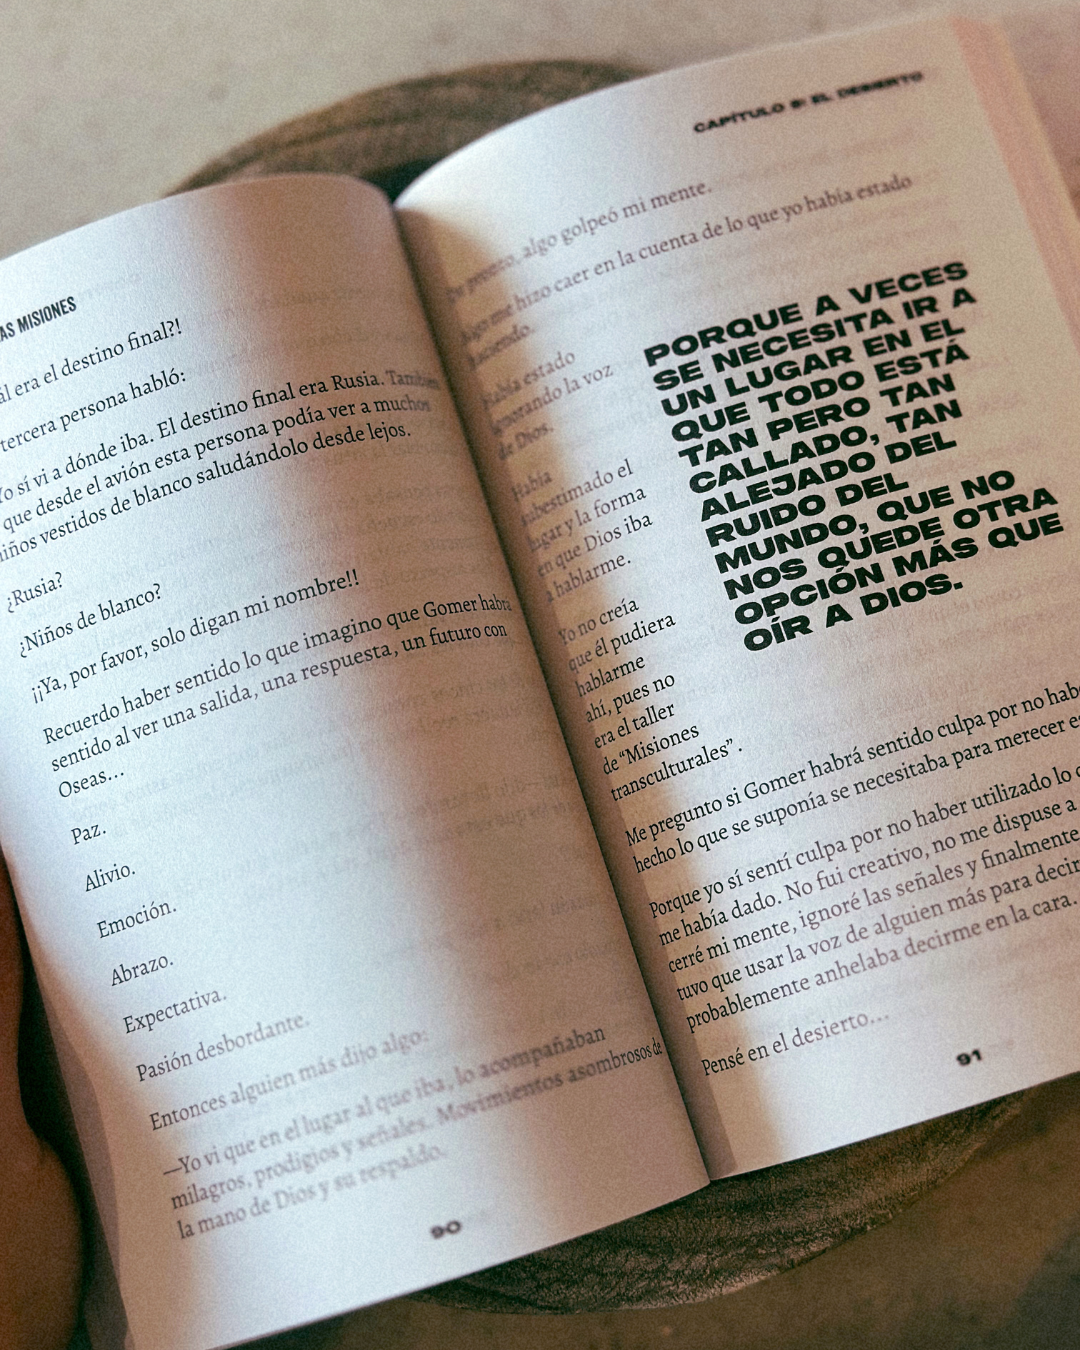 AS MISIONES
ál era el destino final?!
tercera persona habló:
Yo sí vi a dónde iba. El destino final era Rusia. También
que desde el avión esta persona podía ver a muchos
niños vestidos de blanco saludándolo desde lejos.
¿Rusia?
¿Niños de blanco?
¡¡Ya, por favor, solo digan mi nombre!!
Recuerdo haber sentido lo que imagino que Gomer habrá
sentido al ver una salida, una respuesta, un futuro con
Oseas...
Paz.
Alivio.
Emoción.
Abrazo.
Expectativa.
Pasión desbordante.
Entonces alguien más dijo algo:
—Yo vi que en el lugar al que iba, lo acompañaban
milagros, prodigios y señales. Movimientos asombrosos de
la mano de Dios y su respaldo.
90
CAPÍTULO 5: EL DESIERTO
De pronto, algo golpeó mi mente.
Algo me hizo caer en la cuenta de lo que yo había estado
haciendo.
Había estado
ignorando la voz
de Dios.
Había
subestimado el
lugar y la forma
en que Dios iba
a hablarme.
Yo no creía
que él pudiera
hablarme
ahí, pues no
era el taller
de “Misiones
transculturales” .
PORQUE A VECES
SE NECESITA IR A
UN LUGAR EN EL
QUE TODO ESTÁ
TAN PERO TAN
CALLADO, TAN
ALEJADO DEL
RUIDO DEL
MUNDO, QUE NO
NOS QUEDE OTRA
OPCIÓN MÁS QUE
OÍR A DIOS.
Me pregunto si Gomer habrá sentido culpa por no hab
hecho lo que se suponía se necesitaba para merecer es
Porque yo sí sentí culpa por no haber utilizado lo
me había dado. No fui creativo, no me dispuse a
cerré mi mente, ignoré las señales y finalmente
tuvo que usar la voz de alguien más para decir
probablemente anhelaba decirme en la cara.
Pensé en el desierto...
91